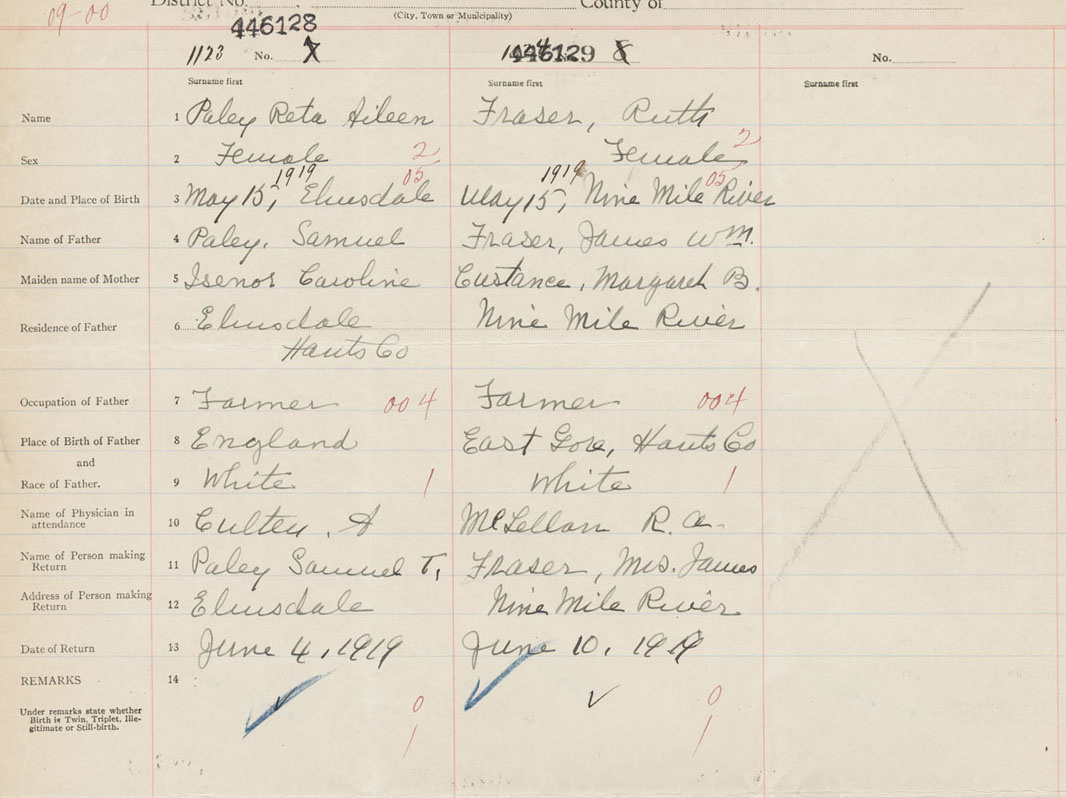 09-00
District No. County of
(City, Town or Municipality)
446128
1123 No. 7
446129 8
No.
Surname first Surname first Surname first
Name 1 Paley Reta Aileen Fraser, Ruth
Sex 2 Female 2 Female 2
1919 05 1919 05
Date and Place of Birth 3 May 15, Elmsdale May 15, Nine Mile River
Name of Father 4 Paley, Samuel Fraser, James Wm.
Maiden name of Mother 5 Isenor Caroline Custance, Margaret B.
Residence of Father 6 Elmsdale Nine Mile River
Hants Co
Occupation of Father 7 Farmer 004 Farmer 004
Place of Birth of Father 8 England East Gore, Hants Co
and
Race of Father. 9 White 1 White 1
Name of Physician in
attendance 10 Culten, A McLellan R. A.
Name of Person making
Return 11 Paley Samuel T, Fraser, Mrs. James
Address of Person making
Return 12 Elmsdale Nine Mile River
Date of Return 13 June 4, 1919 June 10, 1919
REMARKS 14
Under remarks state whether
Birth is Twin, Triplet, Ille-
gitimate or Still-birth.
0 0
1 1